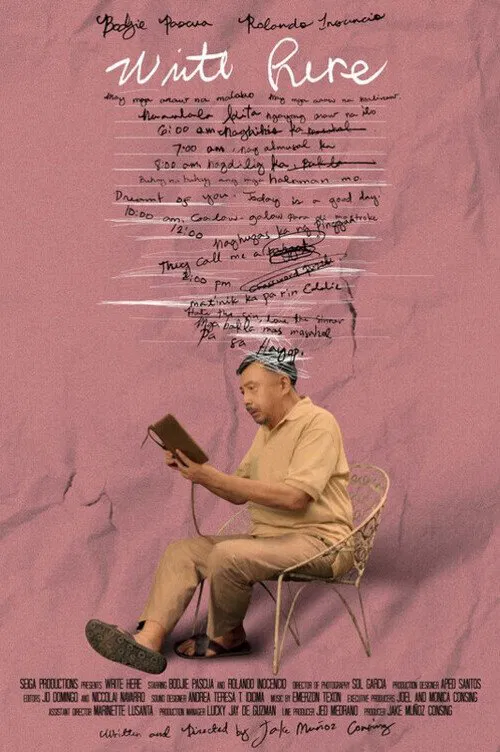 Bodjie Pascua Rolando Inocencio
Write Here
May mga araw na malabo May mga araw na malinaw.
Naaalala kita ngayong araw na ito
6:00 am naghihis ka
7:00 am, nag almusal ka
8:00 am nagdilig ka,
Buhay na buhay ang mga halaman mo.
Dreamt of you. Today is a good day.
10:00 am. Galaw-galaw para di mastroke
12:00
naghugas ka ng pinggan
They call me a
2:00 pm
matinik ka pa rin Eddie
Hate the sin, love the sinner
Mga bakla mas masahol
pa sa Hayop.
SEIGA PRODUCTIONS PRESENTS WRITE HERE STARRING BODJIE PASCUA AND ROLANDO INOCENCIO DIRECTOR OF PHOTOGRAPHY SOL GARCIA PRODUCTION DESIGNER APED SANTOS
EDITORS JD DOMINGO AND NICCOLAI NAVARRO SOUND DESIGNER ANDREA TERESA T. IDIOMA MUSIC BY EMERZON TEXON EXECUTIVE PRODUCERS JOEL AND MONICA CONSING
ASSISTANT DIRECTOR MARINETTE LUSANTA PRODUCTION MANAGER LUCKY JAY DE GUZMAN LINE PRODUCER JED MEDRANO PRODUCER JAKE MUÑOZ CONSING
Written and Directed by Jake Muñoz Consing